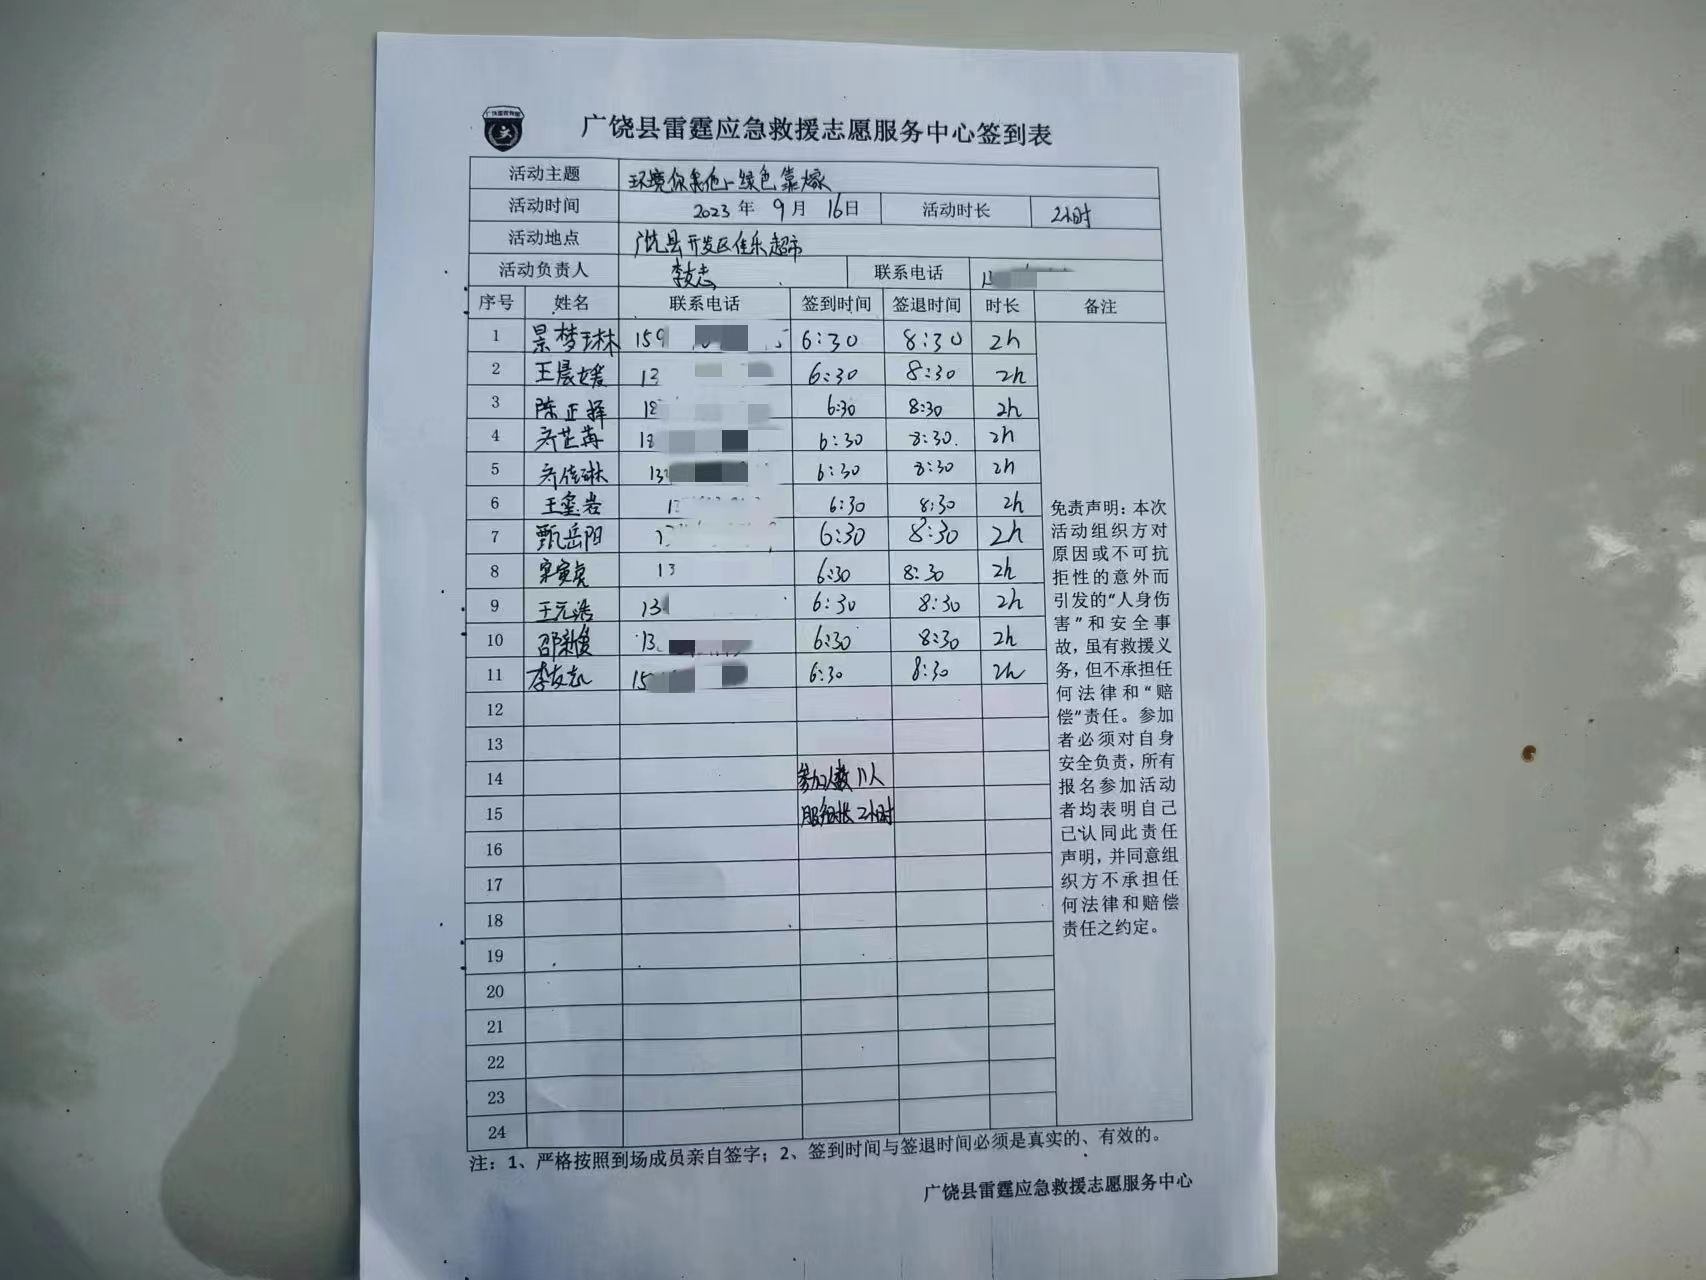 广饶县雷霆应急救援志愿服务中心签到表
活动主题 环境你我他 绿色靠大家
活动时间 2023年 9月 16日 活动时长 2小时
活动地点 广饶县开发区佳乐超市
活动负责人 李友志 联系电话
序号 姓名 联系电话 签到时间 签退时间 时长 备注
1 景梦琳 159 6:30 8:30 2h
2 王晨媛 13 6:30 8:30 2h
3 陈正择 18 6:30 8:30 2h
4 齐芷苒 18 6:30 8:30. 2h
5 齐佳琳 13 6:30 8:30 2h
6 王玺岩 1 6:30 8:30 2h
7 甄岳阳 1 6:30 8:30 2h
8 寅虎 13 6:30 8:30 2h
9 王元浩 13 6:30 8:30 2h
10 邵新俊 13 6:30 8:30 2h
11 李友志 15 6:30 8:30 2h
12
13
14 参加人数 11人
15 服务时长 2小时
16
17
18
19
20
21
22
23
24
免责声明：本次
活动组织方对
原因或不可抗
拒性的意外而
引发的“人身伤
害”和安全事
故，虽有救援义
务，但不承担任
何法律和“赔
偿”责任。参加
者必须对自身
安全负责，所有
报名参加活动
者均表明自己
已认同此责任
声明，并同意组
织方不承担任
何法律和赔偿
责任之约定。
注：1、严格按照到场成员亲自签字；2、签到时间与签退时间必须是真实的、有效的。
广饶县雷霆应急救援志愿服务中心